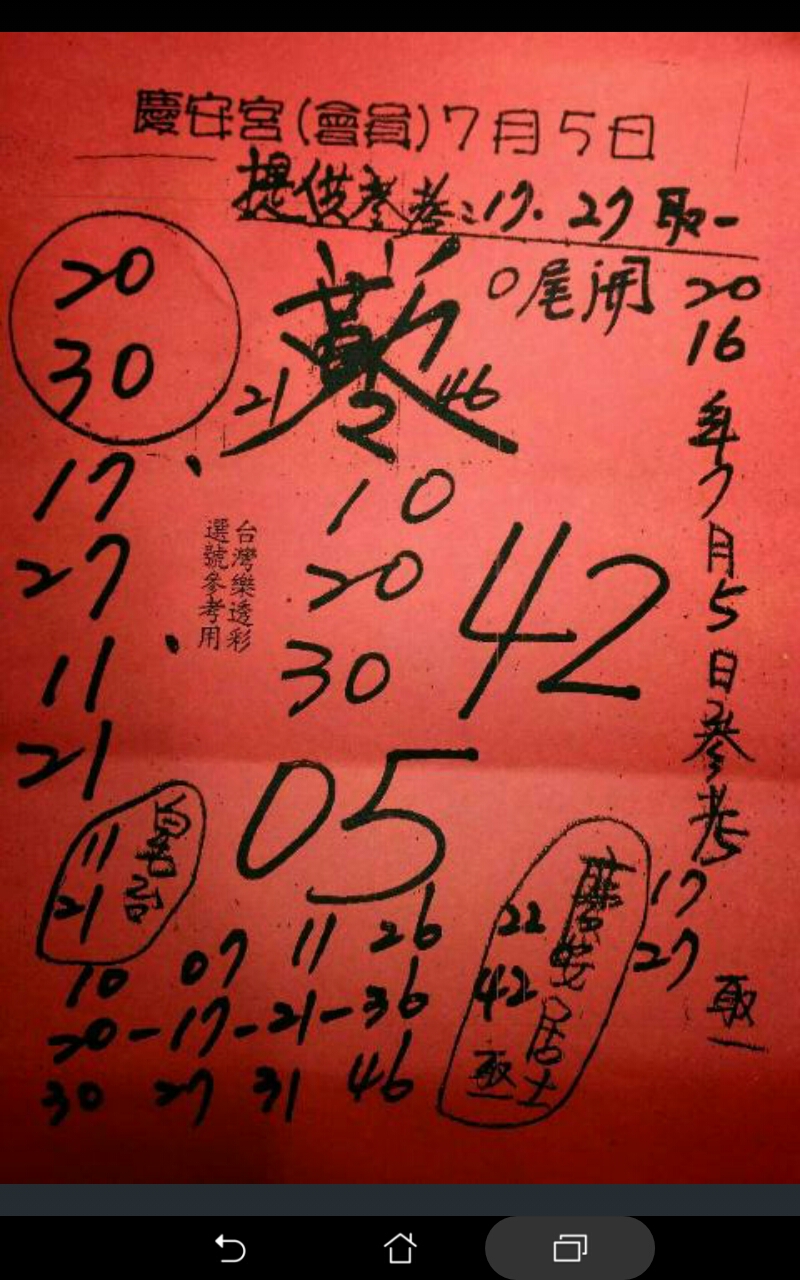 慶安宮(會員)7月5日
提供參考:17.27取一
0尾開
20
30
21
46
2
17
27
11
21
10
20
30
42
05
台灣樂透彩
選號參考用
2016年7月5日參考
17
27
取一
11
21
22
42
取一
慶安居士
10 07 11 26
20-17-21-36
30 27 31 46